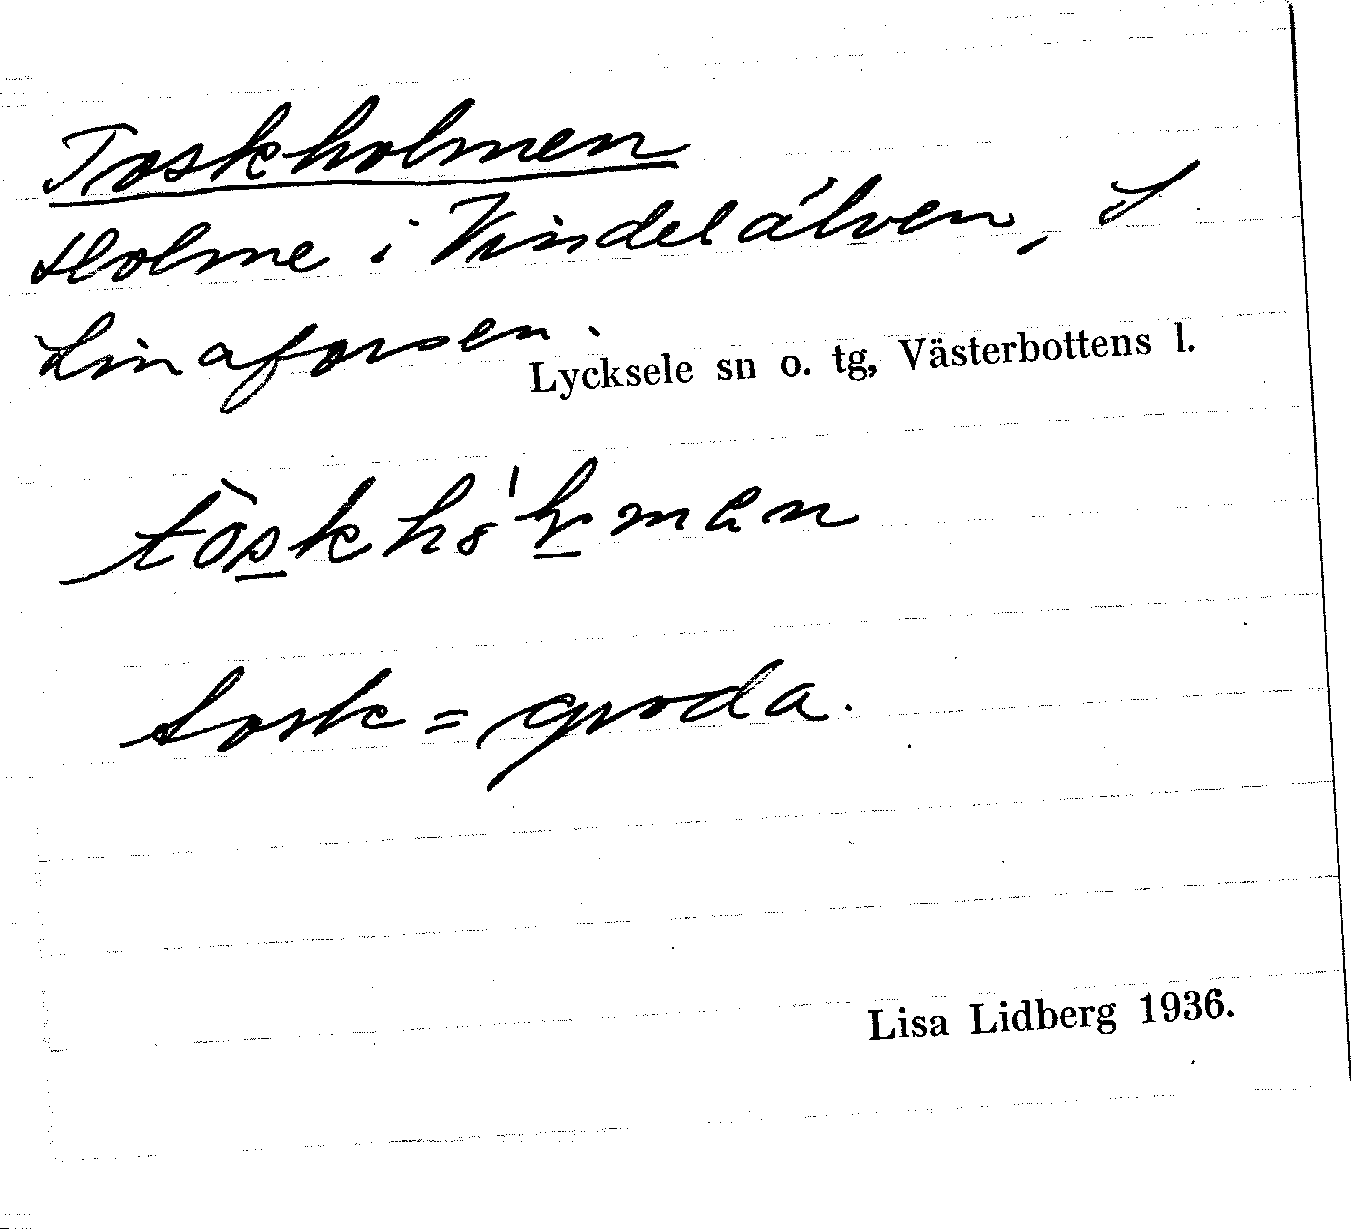 Toskholmen
Holme i Vindelälven, I
Linaforsen.
Lycksele sn o. tg, Västerbottens l.
tosk = groda.
Lisa Lidberg 1936.